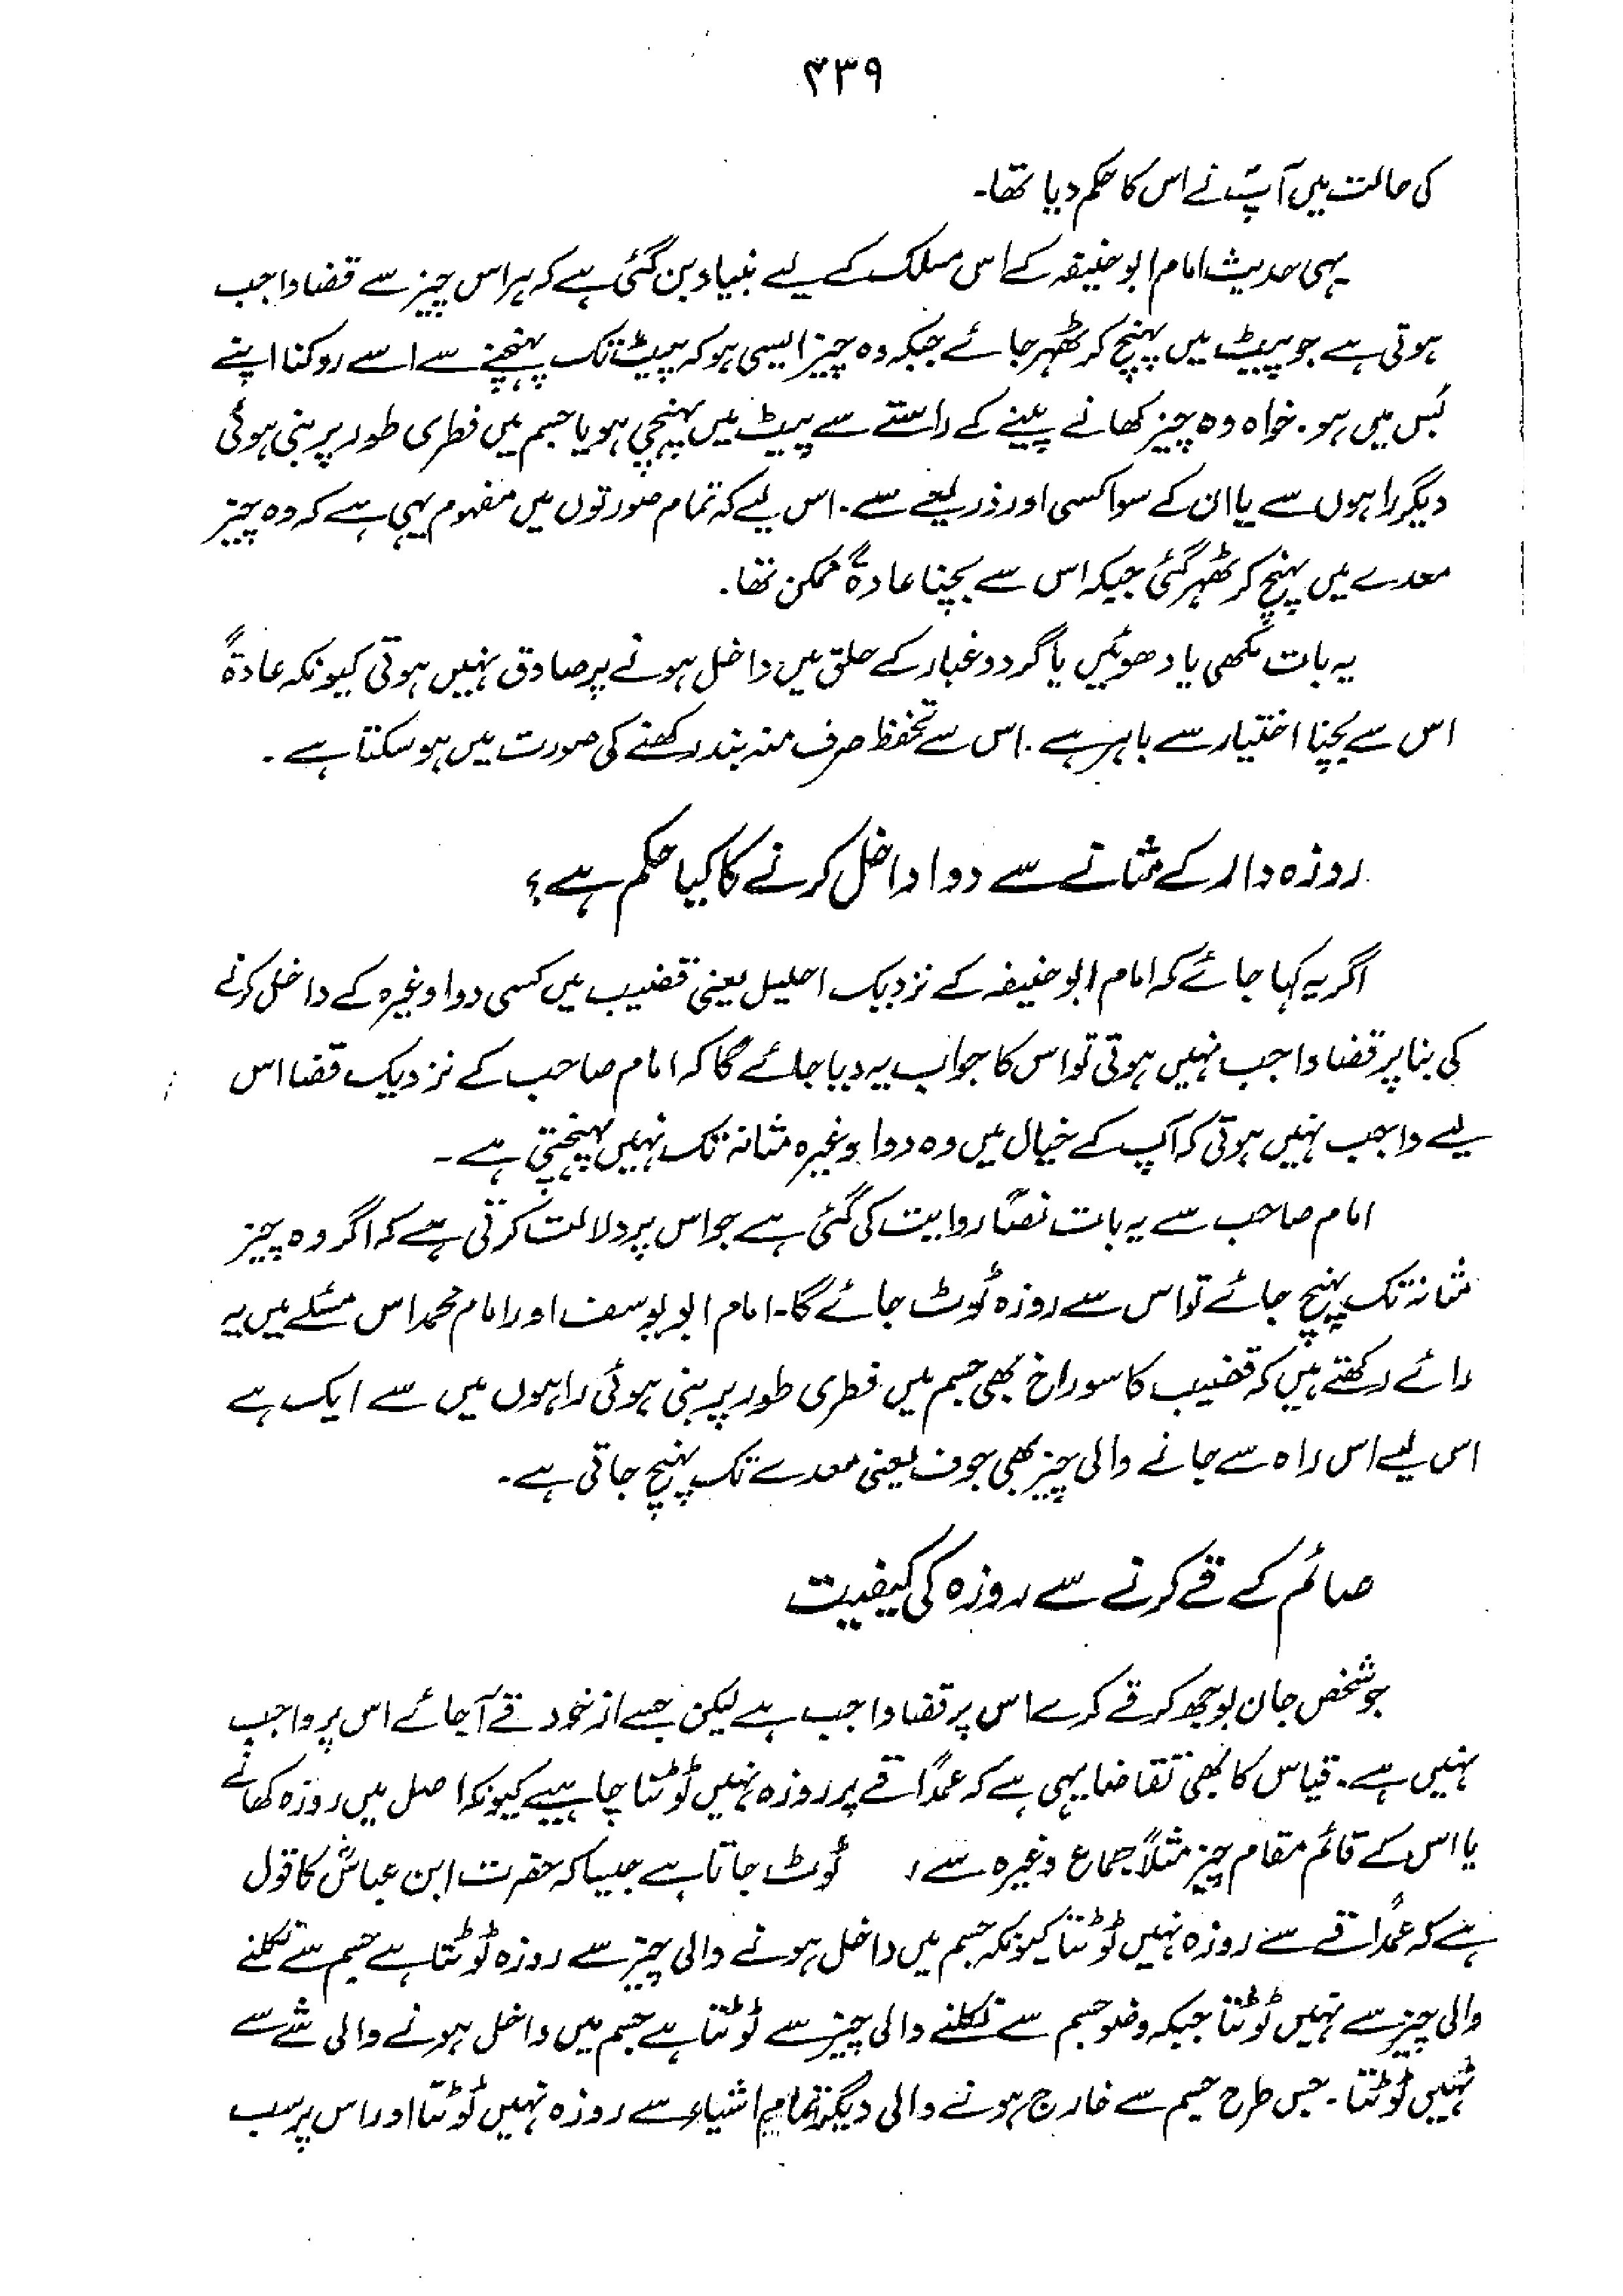 ۴۳۹
کی حالت میں آپؐ نے اس کا حکم دیا تھا۔
یہی حدیث امام ابو حنیفہ کے اس مسلک کے لیے بنیاد بن گئی ہے کہ ہر اس چیز سے قضا واجب
ہوتی ہے جو پیٹ میں پہنچ کر ٹھہر جائے جبکہ وہ چیز ایسی ہو کہ پیٹ تک پہنچنے سے اسے روکنا اپنے
بس میں ہو۔ خواہ وہ چیز کھانے پینے کے راستے سے پیٹ میں پہنچی ہو یا جسم میں فطری طور پر بنی ہوئی
دیگر راہوں سے یا ان کے سوا کسی اور ذریعے سے۔ اس لیے کہ تمام صورتوں میں مفہوم یہی ہے کہ وہ چیز
معدے میں پہنچ کر ٹھہر گئی جبکہ اس سے بچنا عادۃً ممکن تھا۔
یہ بات مکھی یا دھوئیں یا گرد و غبار کے حلق میں داخل ہونے پر صادق نہیں ہوتی کیونکہ عادۃً
اس سے بچنا اختیار سے باہر ہے۔ اس سے تحفظ صرف منہ بند رکھنے کی صورت میں ہو سکتا ہے۔
روزہ دار کے مثانے سے دوا داخل کرنے کا کیا حکم ہے؟
اگر یہ کہا جائے کہ امام ابو حنیفہ کے نزدیک احلیل یعنی قضیب میں کسی دوا وغیرہ کے داخل کرنے
کی بنا پر قضا واجب نہیں ہوتی تو اس کا جواب یہ دیا جائے گا کہ امام صاحب کے نزدیک قضا اس
لیے واجب نہیں ہوتی کہ آپ کے خیال میں وہ دوا وغیرہ مثانہ تک نہیں پہنچتی ہے۔
امام صاحب سے یہ بات نصاً روایت کی گئی ہے جو اس پر دلالت کرتی ہے کہ اگر وہ چیز
مثانہ تک پہنچ جائے تو اس سے روزہ ٹوٹ جائے گا۔ امام ابو یوسف اور امام محمد اس مسئلے میں یہ
رائے رکھتے ہیں کہ قضیب کا سوراخ بھی جسم میں فطری طور پر بنی ہوئی راہوں میں سے ایک ہے
اس لیے اس راہ سے جانے والی چیز بھی جوف یعنی معدے تک پہنچ جاتی ہے۔
صائم کے قے کرنے سے روزہ کی کیفیت
جو شخص جان بوجھ کر قے کرے اس پر قضا واجب ہے لیکن جسے از خود قے آجائے اس پر واجب
نہیں ہے۔ قیاس کا بھی تقاضا یہی ہے کہ عمداً قے پر روزہ نہیں ٹوٹنا چاہیے کیونکہ اصل میں روزہ کھانے
یا اس کے قائم مقام چیز مثلاً جماع وغیرہ سے، ٹوٹ جاتا ہے جیسا کہ حضرت ابن عباسؓ کا قول
ہے کہ عمداً قے سے روزہ نہیں ٹوٹتا کیونکہ جسم میں داخل ہونے والی چیز سے روزہ ٹوٹتا ہے جسم سے نکلنے
والی چیز سے نہیں ٹوٹتا جبکہ وضو جسم سے نکلنے والی چیز سے ٹوٹتا ہے جسم میں داخل ہونے والی شے سے
نہیں ٹوٹتا۔ جس طرح جسم سے خارج ہونے والی دیگر تمام اشیاء سے روزہ نہیں ٹوٹتا اور اس پر سب